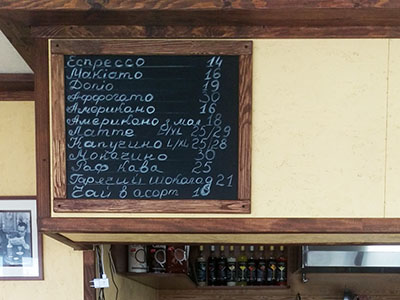 Еспрессо 14
Макіато 16
Допіо 19
Аффогато 30
Американо 16
Американо з мол 18
Латте L/XL 25/29
Капучино L/XL 25/28
Мокачино 30
Раф кава 25
Гарячий шоколад 21
Чай в асорт